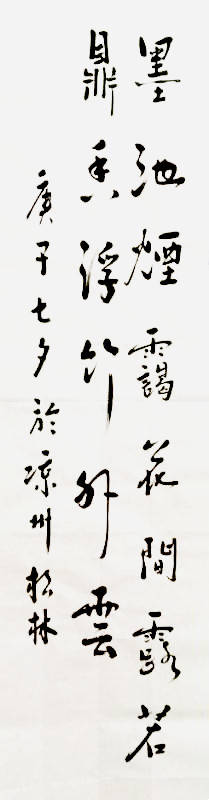 墨池煙靄花間露茗
鼎香浮竹外雲
庚子七夕於涼州松林